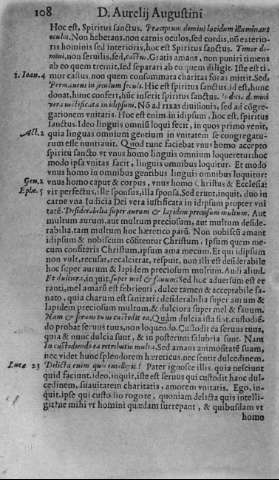 108 D. Aurelij Augustini
Hoc est, Spiritus sanctus. Præceptum domini lucidum illuminans
oculos. Non hebetans: non carnis oculos, sed cordis, nõ exterio-
ris hominis sed interioris, hoc est Spiritus sanctus. Timor domi-
ni, non seruilis, sed castus. Gratis amans, non puniri timens
ab eo quem tremit, sed separari ab eo quem diligit. Iste est ti-
1. Ioan. 4 mor castus, non quem consummata charitas foras mittit. Sed,
Permanens in seculum seculi. Hic est Spiritus sanctus, id est, hunc
donat, hunc confert, hũc inserit Spiritus sanctus. Iudicia dei
vera iustificata in idipsum. Nõ ad rixas diuisionis, sed ad cõgre-
gationem vnitatis. Hoc est enim in idipsum, hoc est, spiritus
sanctus. Ideo linguis omniũ loqui fecit, in quos primo venit,
Act. 2 quia linguas omnium gentium in vnitatem se congregatu-
rum esse nuntiauit. Quod tunc faciebat vnus homo accepto
spiritu sancto, vt vnus homo linguis omnium loqueretur: hoc
modo ipsa vnitas facit, linguis omnibus loquitur. Et modo
vnus homo in omnibus gentibus linguis omnibus loquitur
Gen. 2 vnus homo caput & corpus, vnus homo Christus & Ecclesia:
Ephe. 5 vir perfectus, ille sponsus, illa sponsa. Sed erunt, inquit, duo in
carne vna. Iudicia Dei vera iustificata in idipsum propter vni
tatẽ. Desiderabilia super aurum & lapidem preciosum multum. Aut
multum aurum, aut multum preciosum, aut multum deside-
rabilia, tam multum hoc hæretico parũ. Non nobiscũ amant
idipsum & nobiscum cõfitentur Christum. Ipsum quem me-
cum confiteris Christum, ipsum ama mecum. Et qui idipsum
non vult, recusat, recalcitrat, respuit, non illi est desiderabile
hoc super aurum & lapidem preciosum multum. Audi aliud.
Et dulciora, inquit, super mel & fauum. Sed hoc aduersum est er-
ranti, mel amarũ est febrienti, dulce tamen & acceptabile sa-
nato, quia charum est sanitati: desiderabilia super aurum &
lapidem preciosum multum, & dulciora super mel & fauum.
Nam & seruus tuus custodit ea. Quàm dulcia ista sint, custodiẽ-
do probat seruus tuus, non loquendo. Custodit ea seruus tuus,
quia & nunc dulcia sunt, & in posterum salubria sunt. Nam
In custodiendo ea retributio multa. Sed amans animositatẽ suam,
nec videt hunc splendorem hæreticus, nec sentit dulcedinem.
Lucæ 23 Delicta enim quis intelligit? Pater ignosce illis, quia nesciunt
quid faciunt. ideo, inquit, iste est seruus qui custodit hanc dul-
cedinem, suauitatem charitatis, amorem vnitatis. Ego, in-
quit, ipse qui custodio rogo te, quoniam delicta quis intelli-
git? ne mihi vt homini quædam surrepant, & quibusdam vt
homo